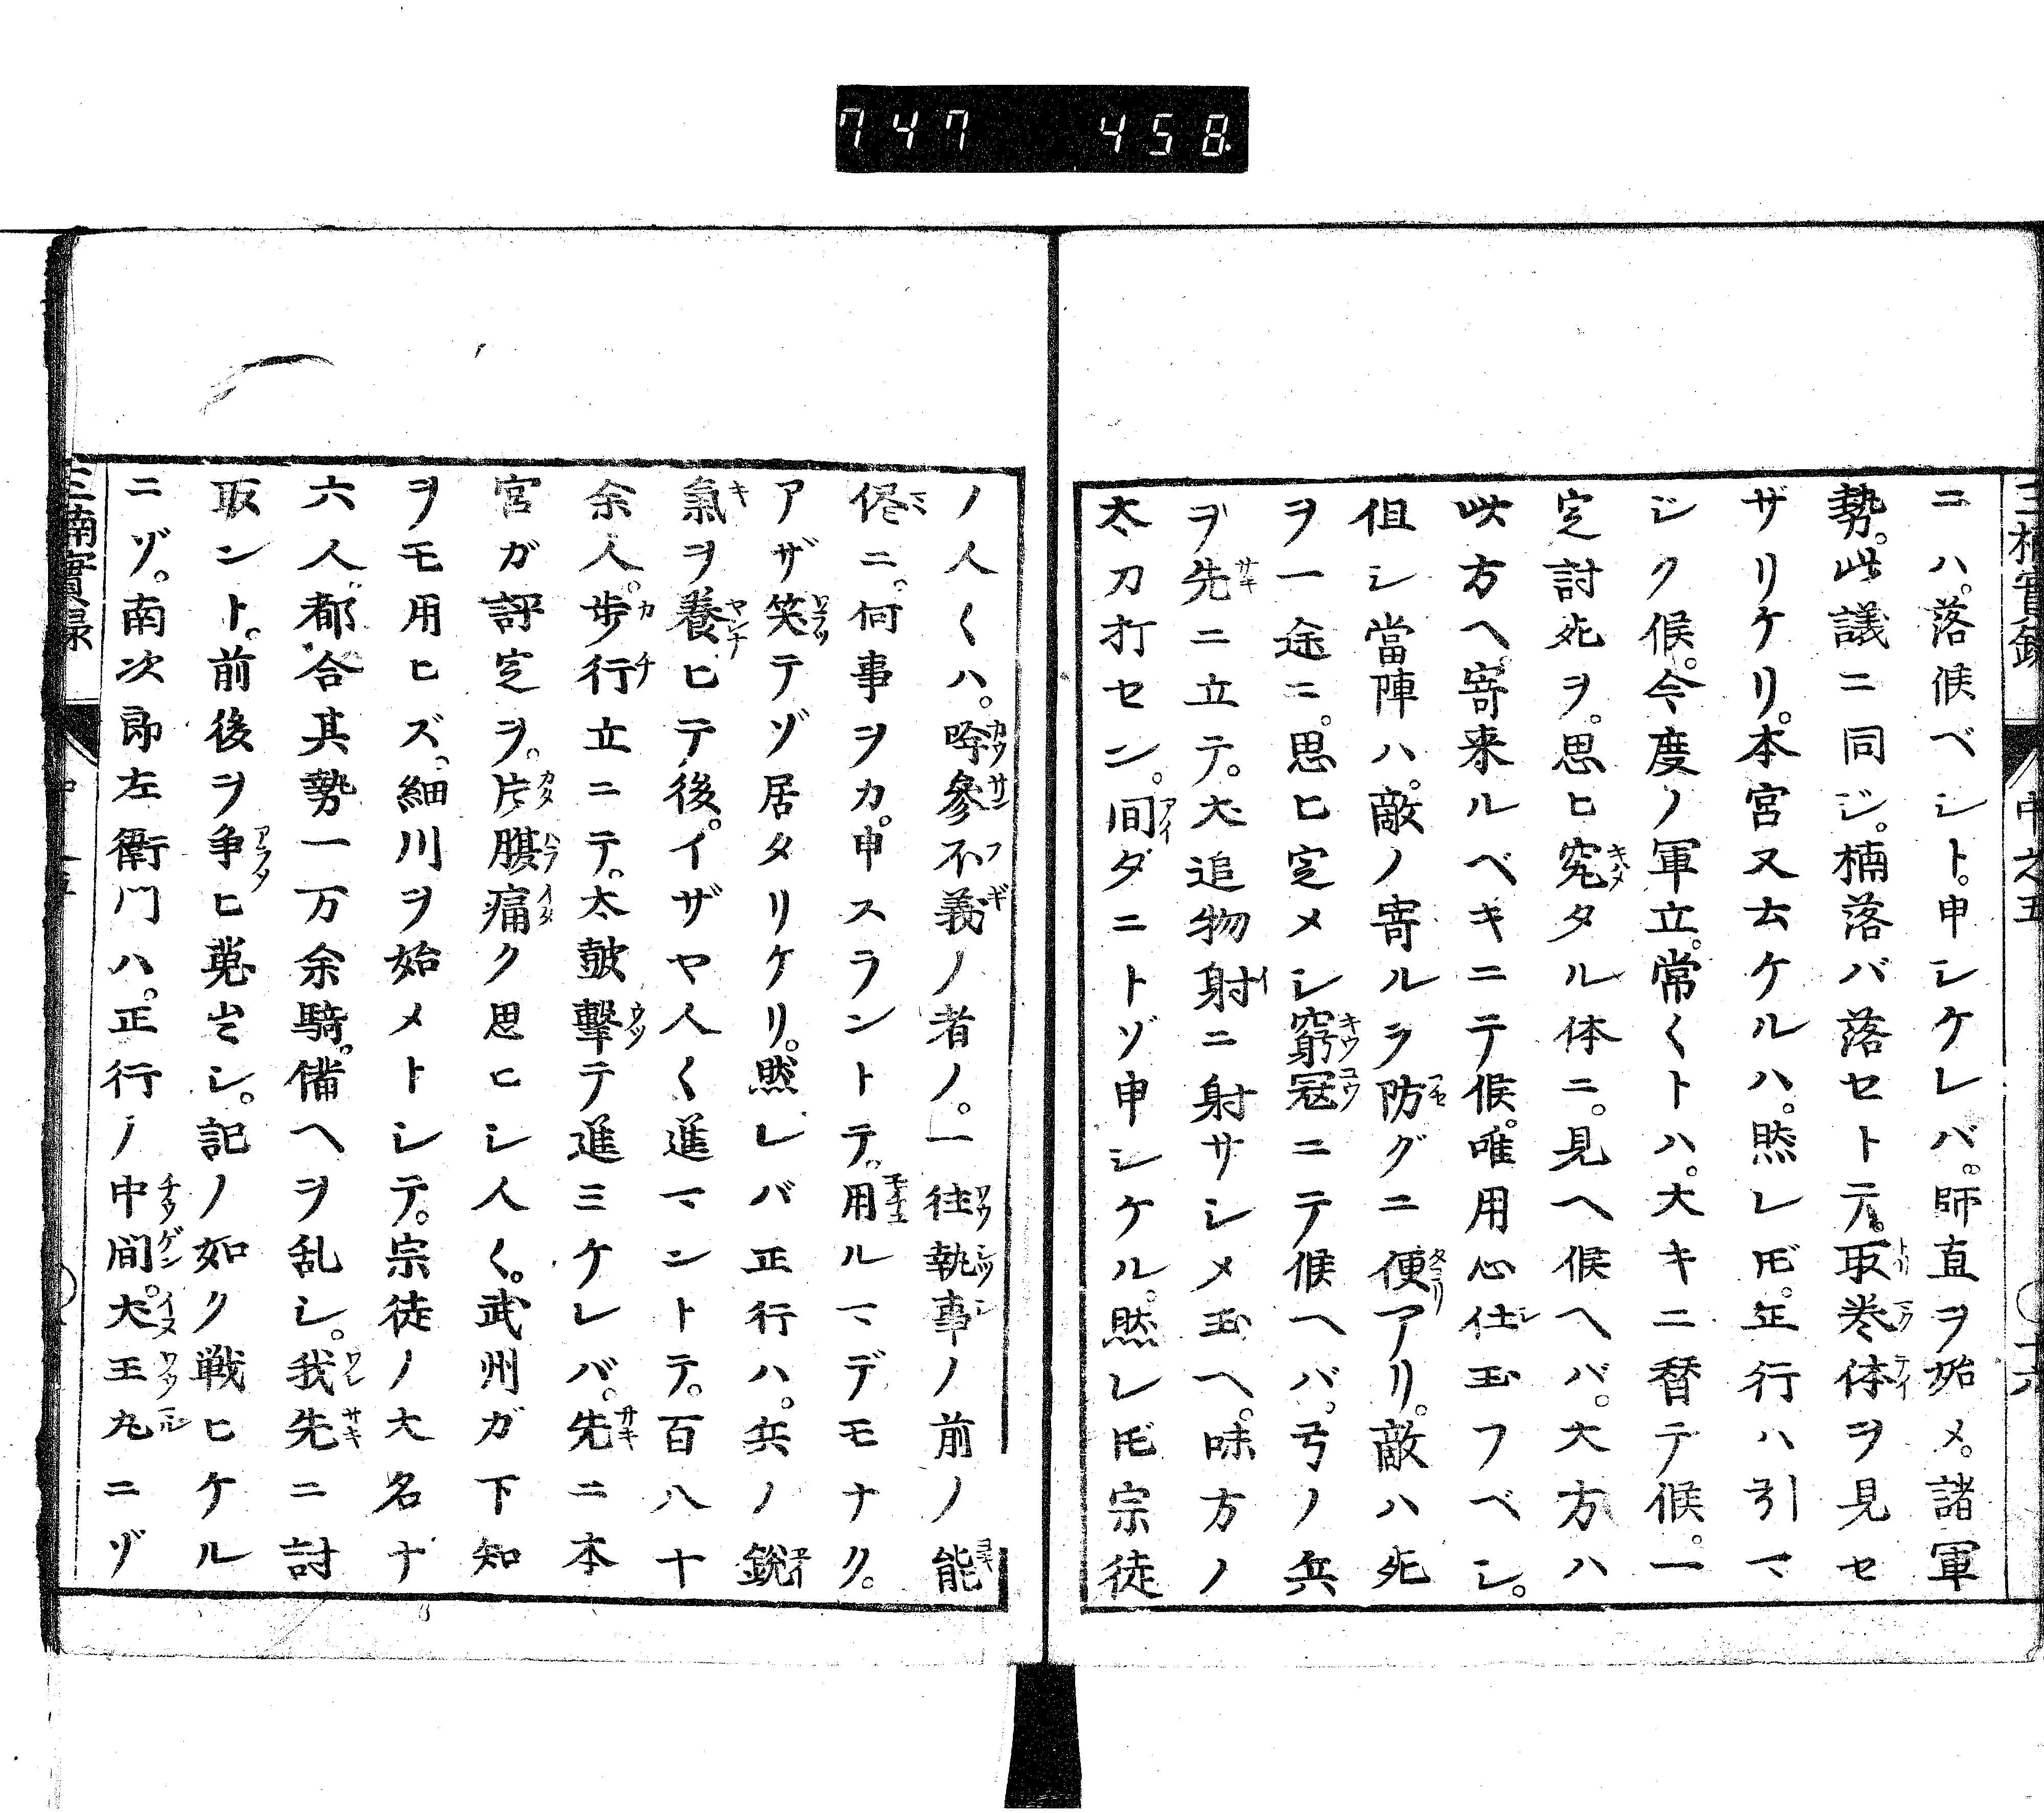 747 458
三楠實錄 中之五
ニハ。落候ベシト。申シケレバ。師直ヲ始メ。諸軍
勢。此議ニ同ジ。楠落バ落セトテ。取巻体ヲ見セ
ザリケリ。本宮又云ケルハ。然レ𪜈。正行ハ引マ
ジク候。今度ノ軍立。常〱トハ。大キニ替テ候。一
定討死ヲ。思ヒ究タル体ニ。見ヘ候ヘバ。大方ハ
此方ヘ。寄来ルベキニテ候。唯用心仕玉フベシ。
但シ當陣ハ。敵ノ寄ルヲ防グニ便アリ。敵ハ死
ヲ一途ニ。思ヒ定メシ窮冦ニテ候ヘバ。弓ノ兵
ヲ先ニ立テ。犬追物射ニ射サシメ玉ヘ。味方ノ
太刀打セン。間ダニトゾ申シケル。然レ𪜈宗徒
ノ人〱ハ。降參不義ノ者ノ。一往執事ノ前ノ能
侭ニ。何事ヲカ。申スラントテ。用ルマデモナク。
アザ笑テゾ居タリケリ。然レバ正行ハ。兵ノ鋭
氣ヲ養ヒテ後。イザヤ人〱進マントテ。百八十
余人。歩行立ニテ。太鼓撃テ進ミケレバ。先ニ本
宮ガ評定ヲ。片腹痛ク思ヒシ人〱。武州ガ下知
ヲモ用ヒズ。細川ヲ始メトシテ。宗徒ノ大名ナ
六人。都合其勢一万余騎。備ヘヲ乱シ。我先ニ討
取ント。前後ヲ争ヒ蒐出シ。記ノ如ク戦ヒケル
ニゾ。南次郎左衛門ハ。正行ノ中間。犬王丸ニゾ
三楠實録